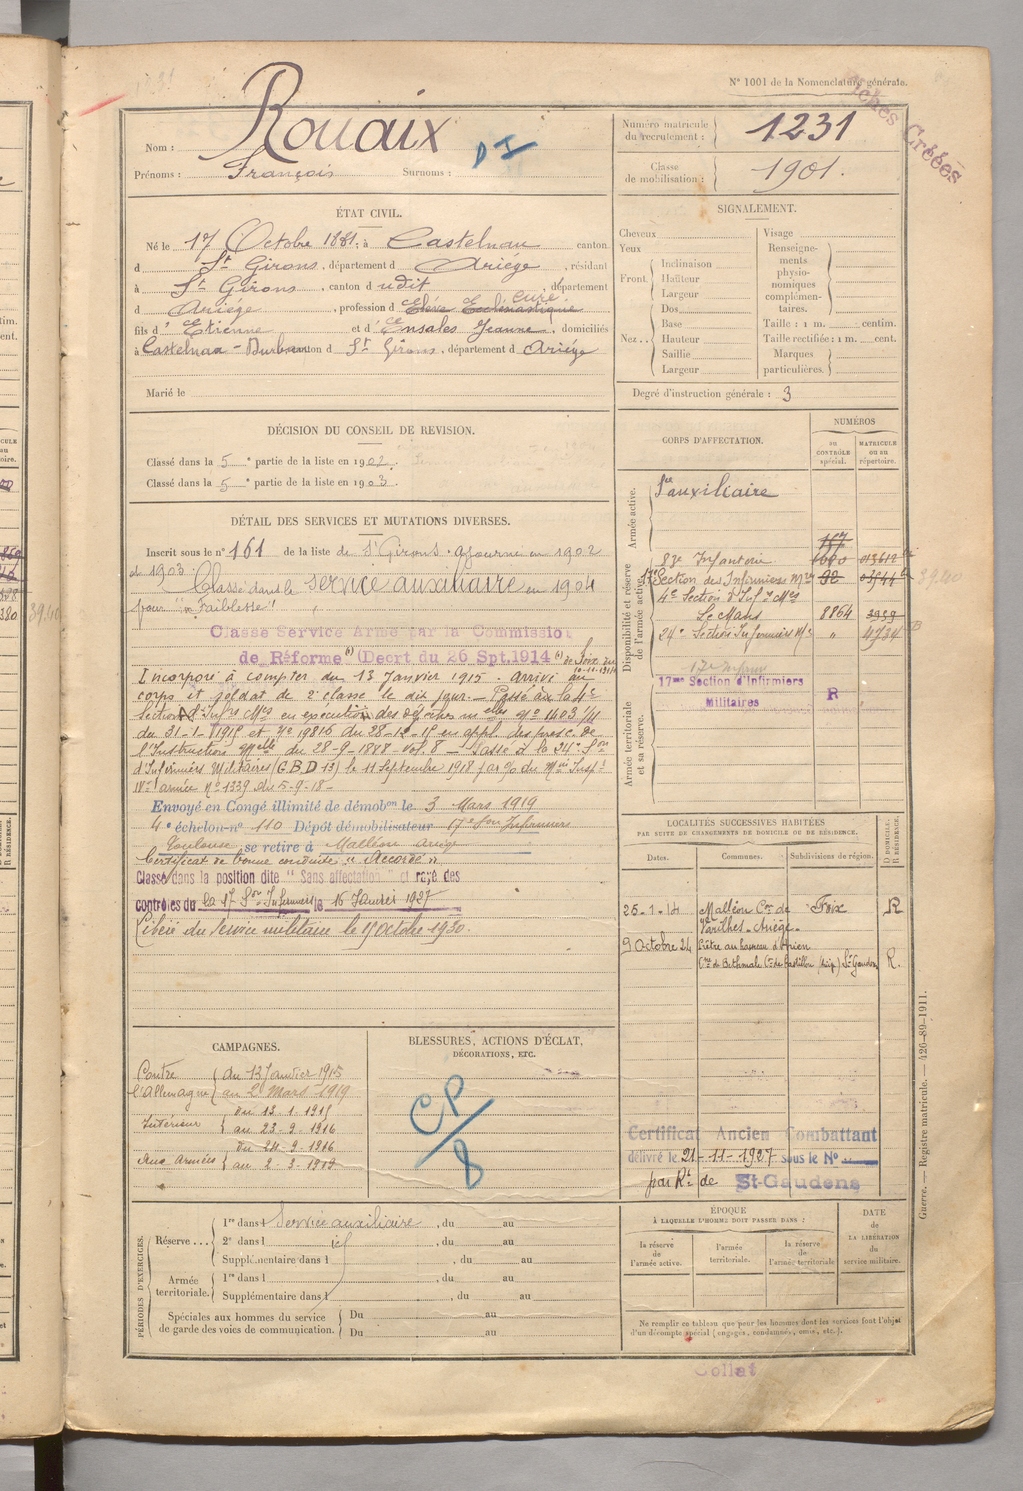 N° 1001 de la Nomenclature générale.
Fiches Créées
Nom : Rouaix
Prénoms : François Surnoms :
DI
Numéro matricule du recrutement : 1231
Classe de mobilisation : 1901.
ÉTAT CIVIL.
Né le 17 Octobre 1881, à Castelnau canton
d St Girons, département d Ariège, résidant
à St Girons, canton d udit, département
d Ariège, profession d Elève Ecclésiastique curé
fils d' Etienne et d' Ensales Jeanne, domiciliés
à Castelnau-Durban canton d St Girons, département d Ariège
Marié le
SIGNALEMENT.
Cheveux
Yeux
Front. Inclinaison
Hauteur
Largeur
Nez.. Dos
Base
Hauteur
Saillie
Largeur
Visage
Renseignements physionomiques complémentaires.
Taille : 1 m. centim.
Taille rectifiée : 1 m. cent.
Marques particulières.
Degré d'instruction générale : 3
DÉCISION DU CONSEIL DE REVISION.
Classé dans la 5e partie de la liste en 1902.
Classé dans la 5e partie de la liste en 1903.
DÉTAIL DES SERVICES ET MUTATIONS DIVERSES.
Inscrit sous le n° 161 de la liste de St Girons. Ajourné en 1902
et 1903. Classé dans le service auxiliaire en 1904
pour "Faiblesse"
Classé Service Armé par la Commission
de Réforme (Décrt du 26 Spt. 1914) de Foix du
Incorporé à compter du 13 Janvier 1915. Arrivé au
corps et soldat de 2e classe le dit jour. Passé à la 4e
Section d'Infres Mres en exécution des dépêches melles N° 1403
du 31-1-1915 et N° 19816 du 28-12-15 en appl. des presc. de
l'Instruction melle du 28-9-1888 vol. 8 - Passé à la 24e Son
d'Infirmiers Militaires (G.B.D 13) le 11 Septembre 1918
IVe armée N° 1339 du 5-9-18-
Envoyé en Congé illimité de démobon le 3 Mars 1919
4e échelon-n° 110 Dépôt démobilisateur 17e Son Infirmiers
Toulouse se retire à Malléon Ariège
Certificat de bonne conduite "Accordé"
Classé dans la position dite "Sans affectation" et rayé des
contrôles du la 17e Son Infirmiers le 15 Janvier 1927
Libéré du service militaire le 15 octobre 1930.
CORPS D'AFFECTATION.
NUMÉROS
au CONTRÔLE spécial.
MATRICULE ou au répertoire.
Armée active.
Sce auxiliaire
Disponibilité et réserve de l'armée active.
83e Infanterie
Section des Infirmiers Mres
4e Section d'Infres Mres
Le Mans 8864 3959
24e Section Infirmiers M. " 4734
17e Infirm
Armée territoriale et sa réserve.
17me Section d'Infirmiers
Militaires R
LOCALITÉS SUCCESSIVES HABITÉES
PAR SUITE DE CHANGEMENTS DE DOMICILE OU DE RÉSIDENCE.
Dates. Communes. Subdivisions de région.
D DOMICILE. R RÉSIDENCE.
25-1-14 Malléon Con de Foix R
Varilhes-Ariège
9 Octobre 24 Prêtre au hameau d'Arien
Cne de Bethmale Con de Castillon St Gaudens R.
Certificat Ancien Combattant
délivré le 21-11-1927 sous le N°
par Rt de St-Gaudens
CAMPAGNES.
Contre l'Allemagne du 13 Janvier 1915
au 2 mars 1919
Intérieur du 13.1.1915
au 23-9-1916
Aux armées du 24-9-1916
au 2-3-1919
BLESSURES, ACTIONS D'ÉCLAT,
DÉCORATIONS, ETC.
CP/8
PÉRIODES D'EXERCICES.
Réserve... 1re dans l Service auxiliaire, du au
2e dans l id, du au
Supplémentaire dans l, du au
Armée territoriale. 1re dans l, du au
Supplémentaire dans l, du au
Spéciales aux hommes du service de garde des voies de communication. Du au
Du au
ÉPOQUE
À LAQUELLE L'HOMME DOIT PASSER DANS :
la réserve de l'armée active.
l'armée territoriale.
la réserve de l'armée territoriale
DATE de LA LIBÉRATION du service militaire.
Ne remplir ce tableau que pour les hommes dont les services font l'objet
d'un décompte spécial (engagés, condamnés, omis, etc.).
Guerre. — Registre matricule. — 426-89-1911.
Collat